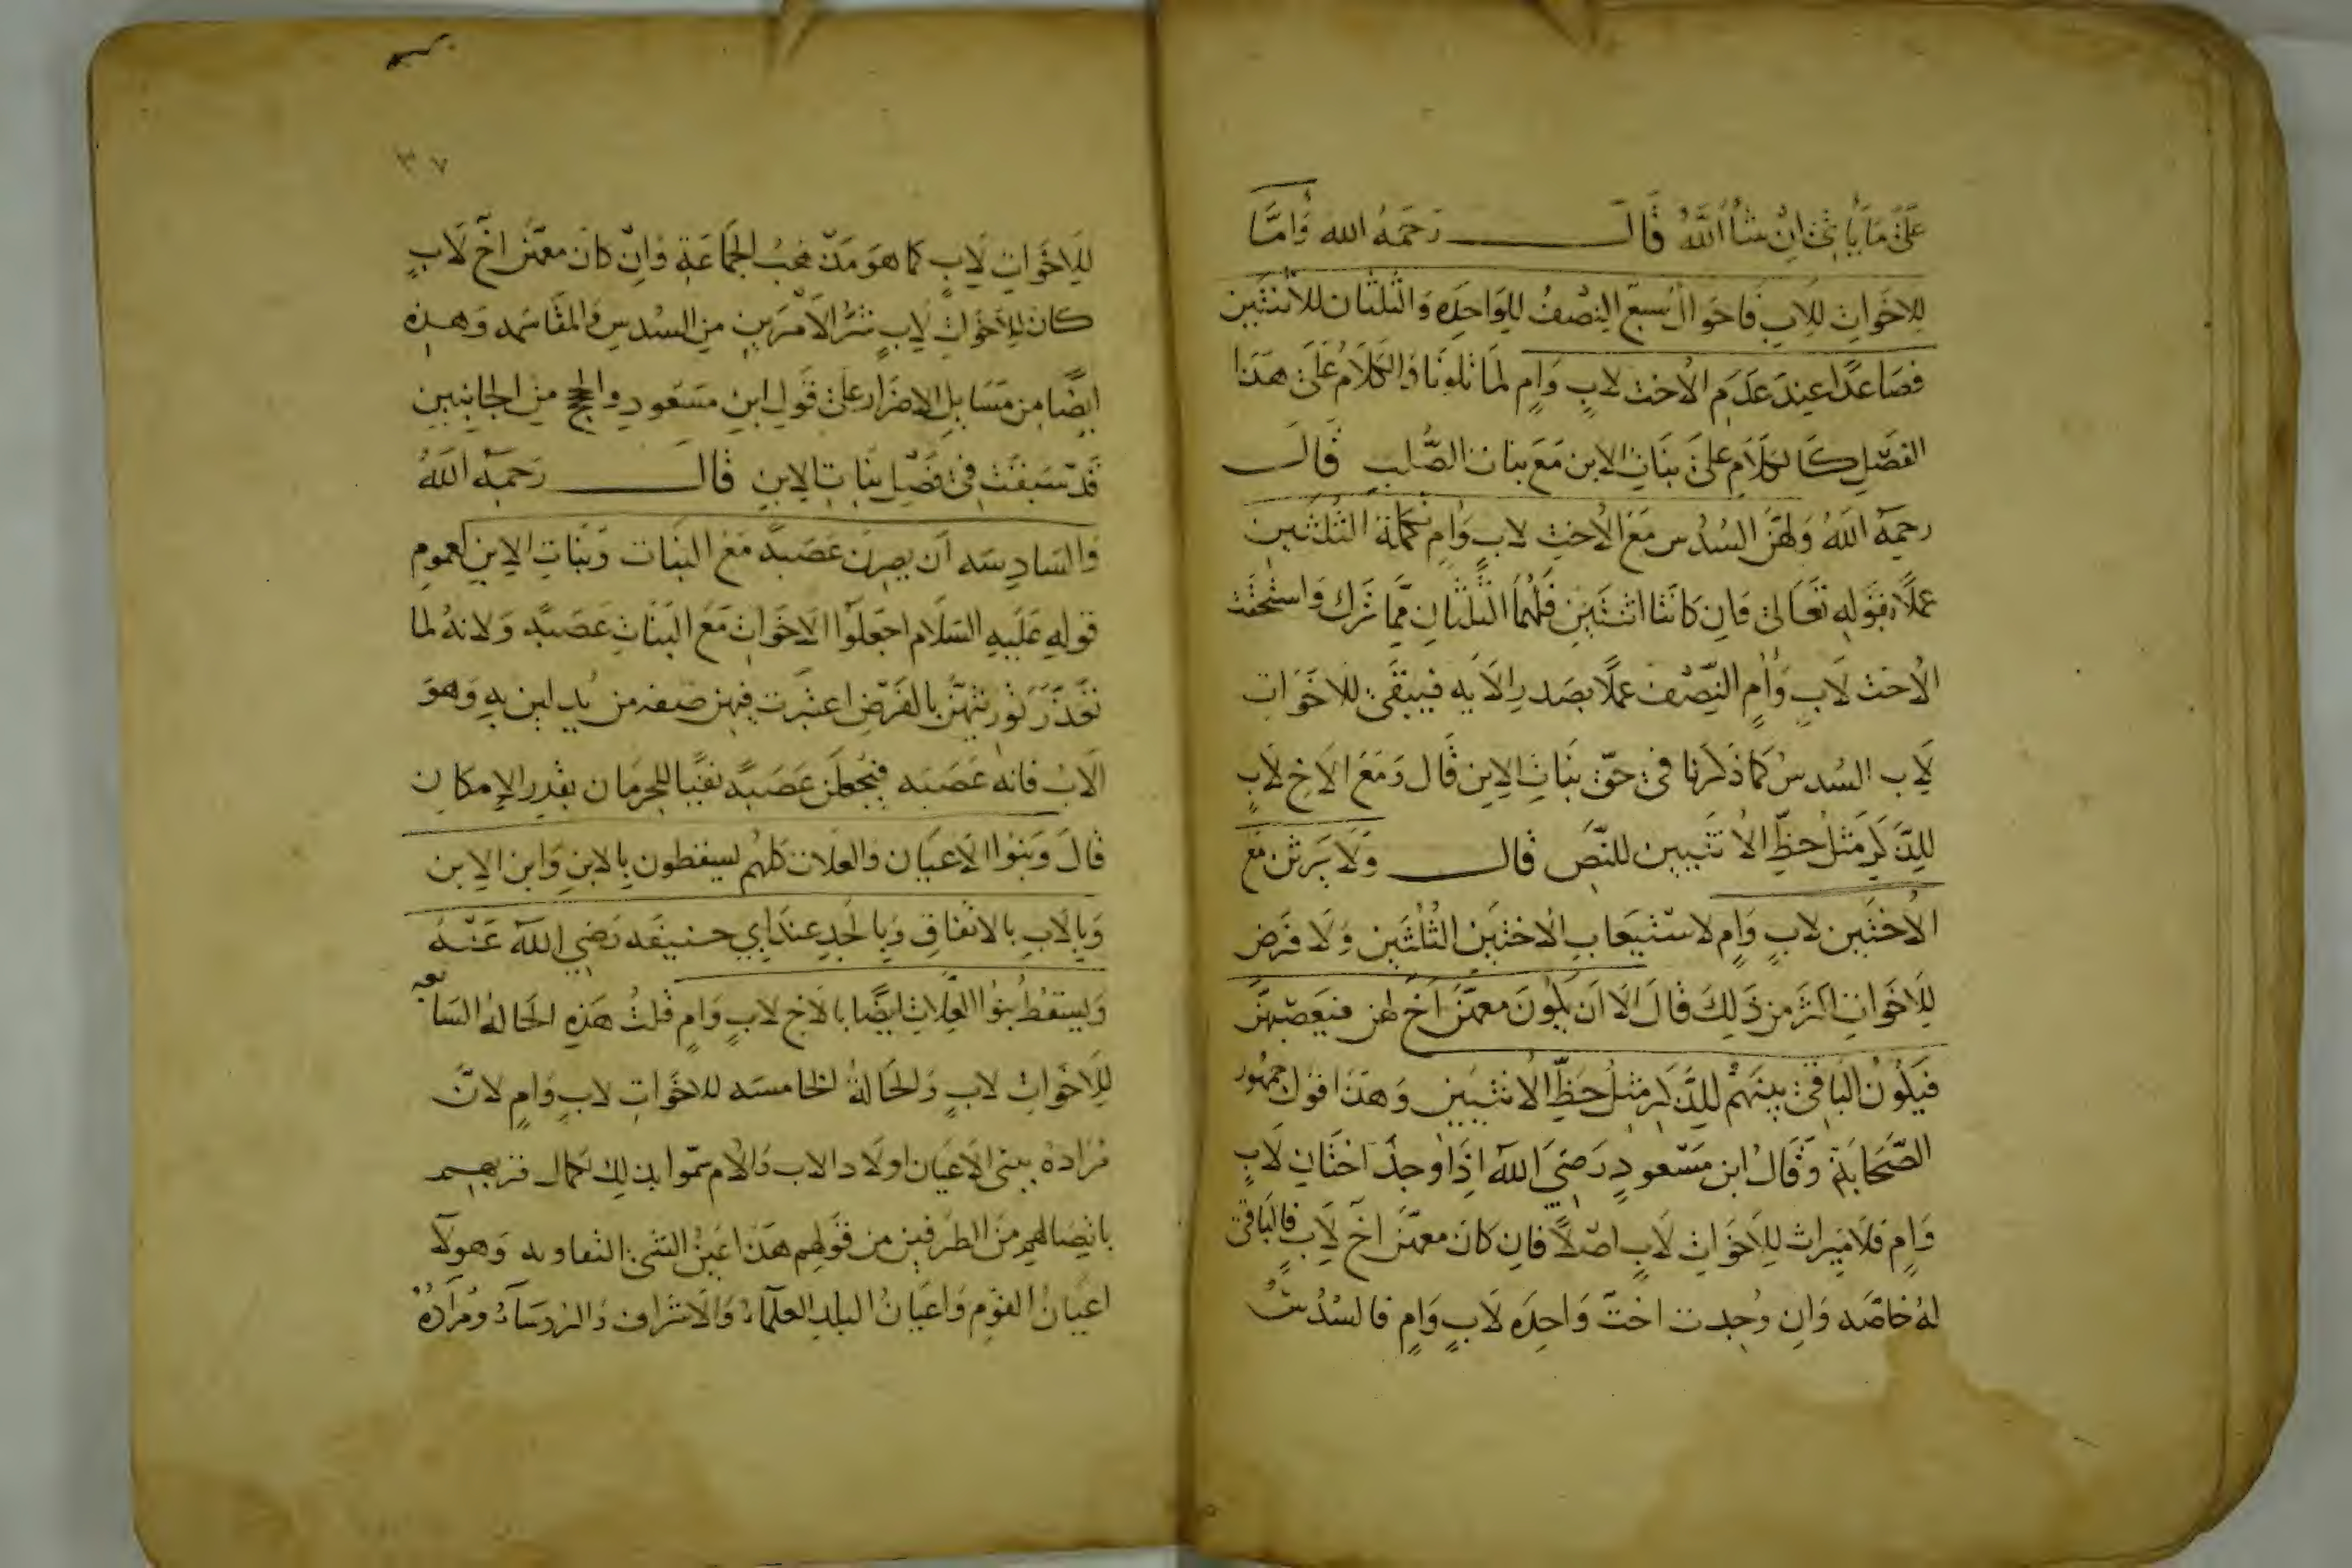 على ما يأتي ان شاء الله قال رحمه الله وأما
للاخوات للاب فاحوال سبع النصف للواحدة والثلثان للاثنتين
فصاعدا عند عدم الاخت لاب وام لما تلونا والكلام على هذا
الفصل كالكلام على بنات الابن مع بنات الصلب قال
رحمه الله ولهن السدس مع الاخت لاب وام تكملة الثلثين
عملا بقوله تعالى فان كانتا اثنتين فلهما الثلثان مما ترك واستحقت
الاخت لاب وام النصف عملا بصدر الآيه فيبقى للاخوات
لاب السدس كما ذكرنا في حق بنات الابن قال ومع الاخ لاب
للذكر مثل حظ الانثيين للنص قال ولا يرثن مع
الاختين لاب وام لاستيعاب الاختين الثلثين ولا فرض
للاخوات اكثر من ذلك قال الا ان يكون معهن اخ لهن فيعصبهن
فيكون الباقي بينهم للذكر مثل حظ الانثيين وهذا قول جمهور
الصحابة وقال ابن مسعود رضي الله اذا وجد اختان لاب
وام فلا ميراث للاخوات لاب اصلا فان كان معهن اخ لاب فالباقي
له خاصه وان وجدت اخت واحده لاب وام فالسدس
٣٧
للاخوات لاب كما هو مذهب الجماعة وان كان معهن اخ لاب
كان للاخوات لاب شر الامرين من السدس والمقاسمه وهذه
ايضا من مسايل الاضرار على قول ابن مسعود والحجج من الجانبين
قد سبقت في فصل بنات الابن قال رحمه الله
والسادسه ان يصرن عصبة مع البنات وبنات الابن لعموم
قوله عليه السلام اجعلوا الاخوات مع البنات عصبة ولانه لما
تعذر توريثهن بالفرض اعتبرت فيهن صفه من يدلين به وهو
الاب فانه عصبه فيجعلن عصبة نفيا للحرمان بقدر الامكان
قال وبنوا الاعيان والعلات كلهم يسقطون بالابن وابن الابن
وبالاب بالاتفاق وبالجد عند ابي حنيفه رضي الله عنه
ويسقط بنوا العلات ايضا بالاخ لاب وام قلت هذه الحالة السابعه
للاخوات لاب والحالة الخامسه للاخوات لاب وام لان
مراده ببني الاعيان اولاد الاب والام سموا بذلك لكمال قربهم
باتصالهم من الطرفين من قولهم هذا عين الشي وهولآ
اعيان القوم واعيان البلد العلماء والاشراف والروساء ومراده